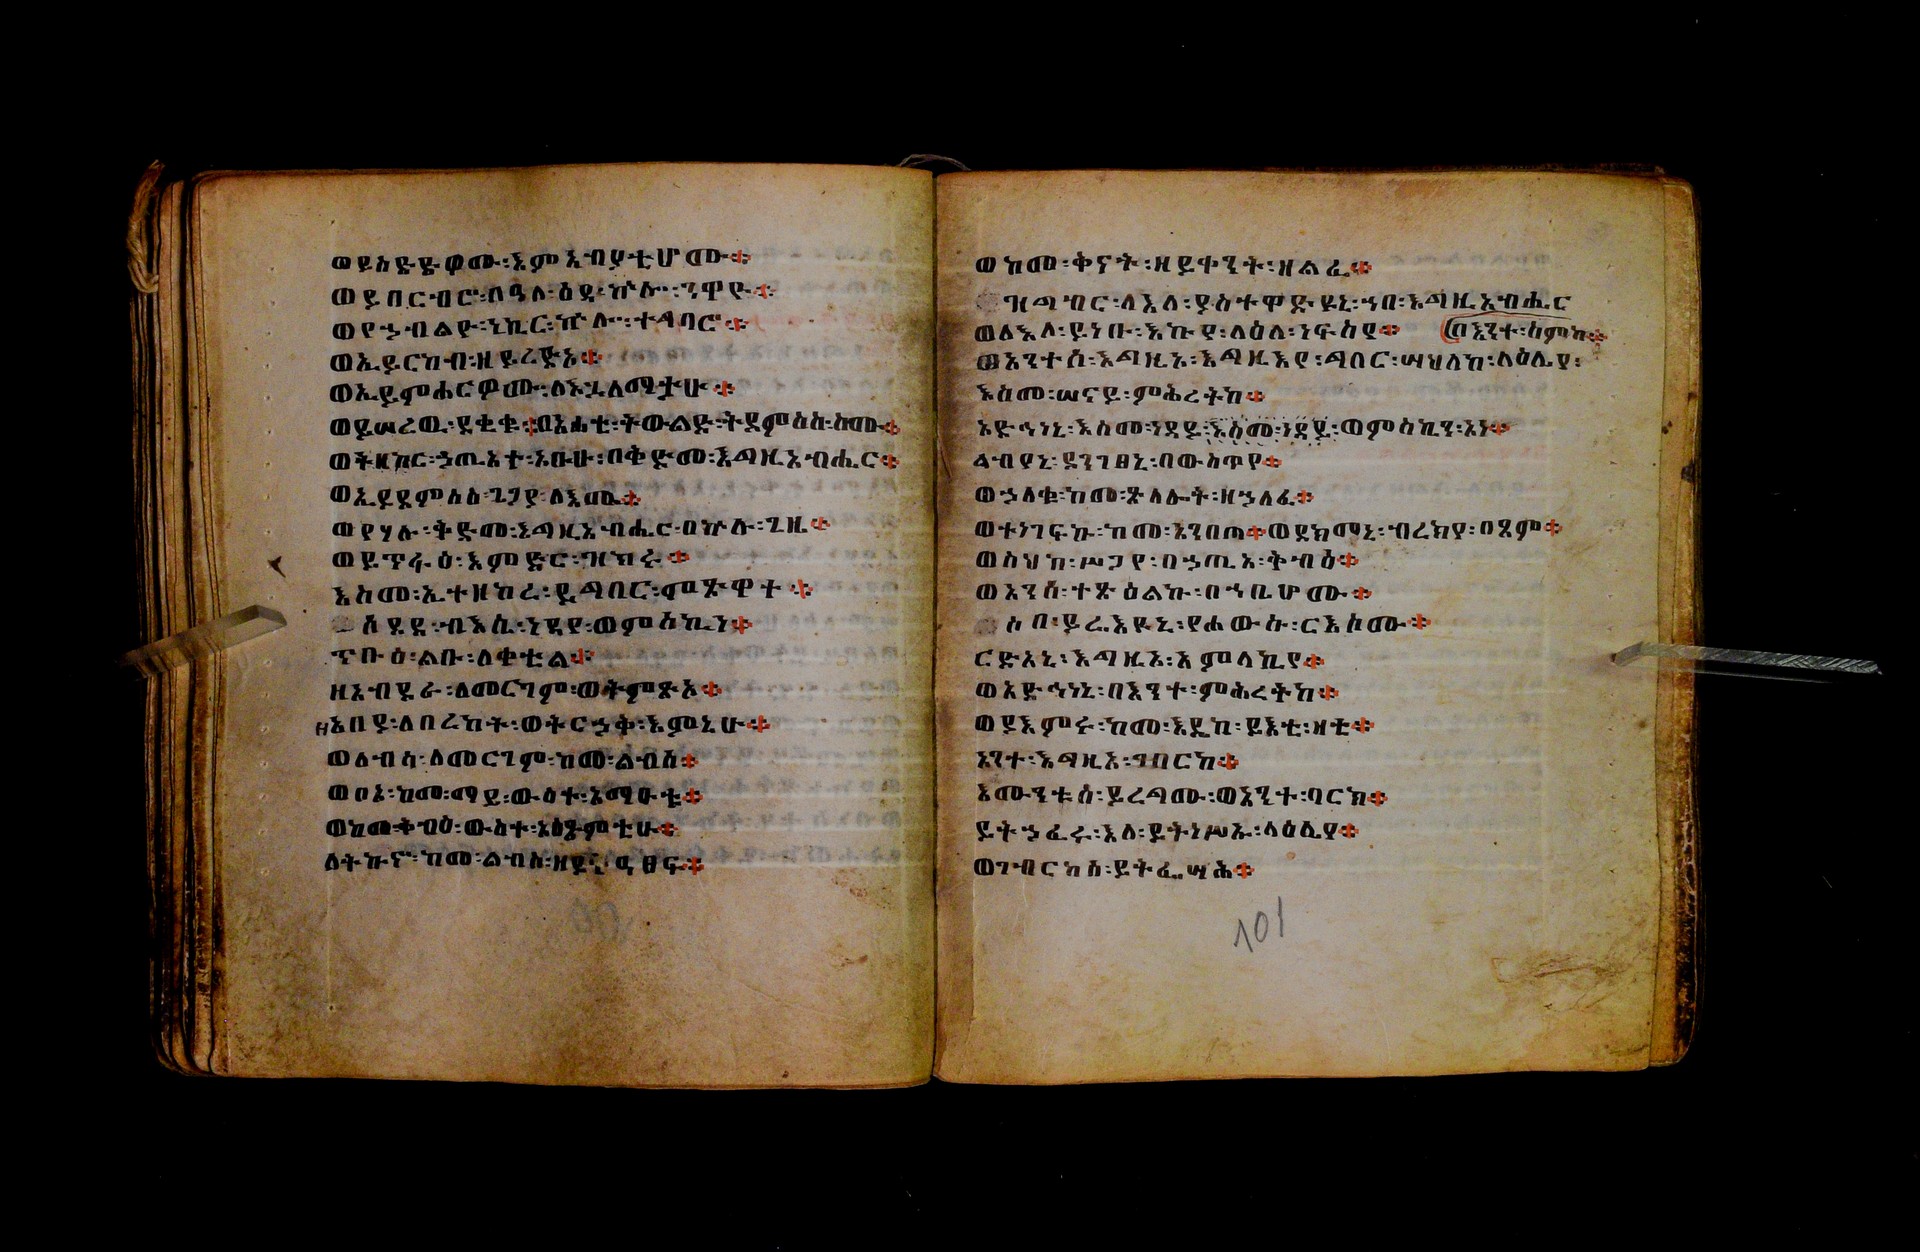 ወይስድድዎሙ፡እምአብያቲሆሙ።
ወይበርብሮ፡በዓለ፡ዕዳ፡ኵሎ፡ንዋዮ።
ወየኃብልዮ፡ነኪር፡ኵሎ፡ተግባሮ።
ወኢይርከብ፡ዘይረድኦ።
ወኢይምሐርዎሙ፡ለእጓለማቷሁ።
ወይሠረዉ፡ደቂቁ።በአሐቲ፡ትውልድ፡ትደምሰስ፡ስሙ።
ወትዘከር፡ኃጢአተ፡አቡሁ፡በቅድመ፡እግዚአብሔር።
ወኢይደምሰስ፡ጌጋያ፡ለእሙ።
ወየሃሉ፡ቅድመ፡እግዚአብሔር፡በኵሉ፡ጊዜ።
ወይጥፋዕ፡እምድር፡ዝክሩ።
እስመ፡ኢተዘከረ፡ይግበር፡ምጽዋተ።
ሰደደ፡ብእሴ፡ነዳየ፡ወምስኪነ።
ጥቡዕ፡ልቡ፡ለቀቲል።
ዘአብደራ፡ለመርገም፡ወትምጽኦ።
ዘአበያ፡ለበረከት፡ወትርኃቅ፡እምኔሁ።
ወለብሳ፡ለመርገም፡ከመ፡ልብስ።
ወቦአ፡ከመ፡ማይ፡ውስተ፡አማዑቱ።
ወከመ፡ቅብዕ፡ውስተ፡አዕፅምቲሁ።
ለትኩኖ፡ከመ፡ልብስ፡ዘይትዐፀፍ።
ወከመ፡ቅናት፡ዘይቀንት፡ዘልፈ።
ዝግብር፡ለእለ፡ያስተዋድዩኒ፡ኀበ፡እግዚአብሔር
ወለእለ፡ይነቡ፡እኩየ፡ላዕለ፡ነፍስየ።
በእንተ፡ስምከ።
ወአንተሰ፡እግዚኦ፡እግዚእየ፡ግበር፡ሣህለከ፡ላዕሌየ፡
እስመ፡ሠናይ፡ምሕረትከ።
አድኅነኒ፡እስመ፡ነዳይ፡እስመ፡ነዳይ፡ወምስኪን፡አነ።
ልብየኒ፡ደንገፀኒ፡በውስጥየ።
ወኃለቁ፡ከመ፡ጽላሎት፡ዘኃለፈ።
ወተነገፍኩ፡ከመ፡አንበጣ።ወደክማኒ፡ብረክየ፡በጾም።
ወስህከ፡ሥጋየ፡በኃጢአ፡ቅብዕ።
ወአንሰ፡ተጽዕልኩ፡በኀቤሆሙ።
ሶበ፡ይሬእዩኒ፡የሐውሱ፡ርእሶሙ።
ርድአኒ፡እግዚኦ፡አምላኪየ።
ወአድኅነኒ፡በእንተ፡ምሕረትከ።
ወያእምሩ፡ከመ፡እዴከ፡ይእቲ፡ዛቲ።
አንተ፡እግዚኦ፡ገበርከ።
እሙንቱሰ፡ይረግሙ፡ወአንተ፡ባርክ።
ይትኃፈሩ፡እለ፡ይትነሥኡ፡ላዕሌየ።
ወገብርከሰ፡ይትፌሣሕ።
101